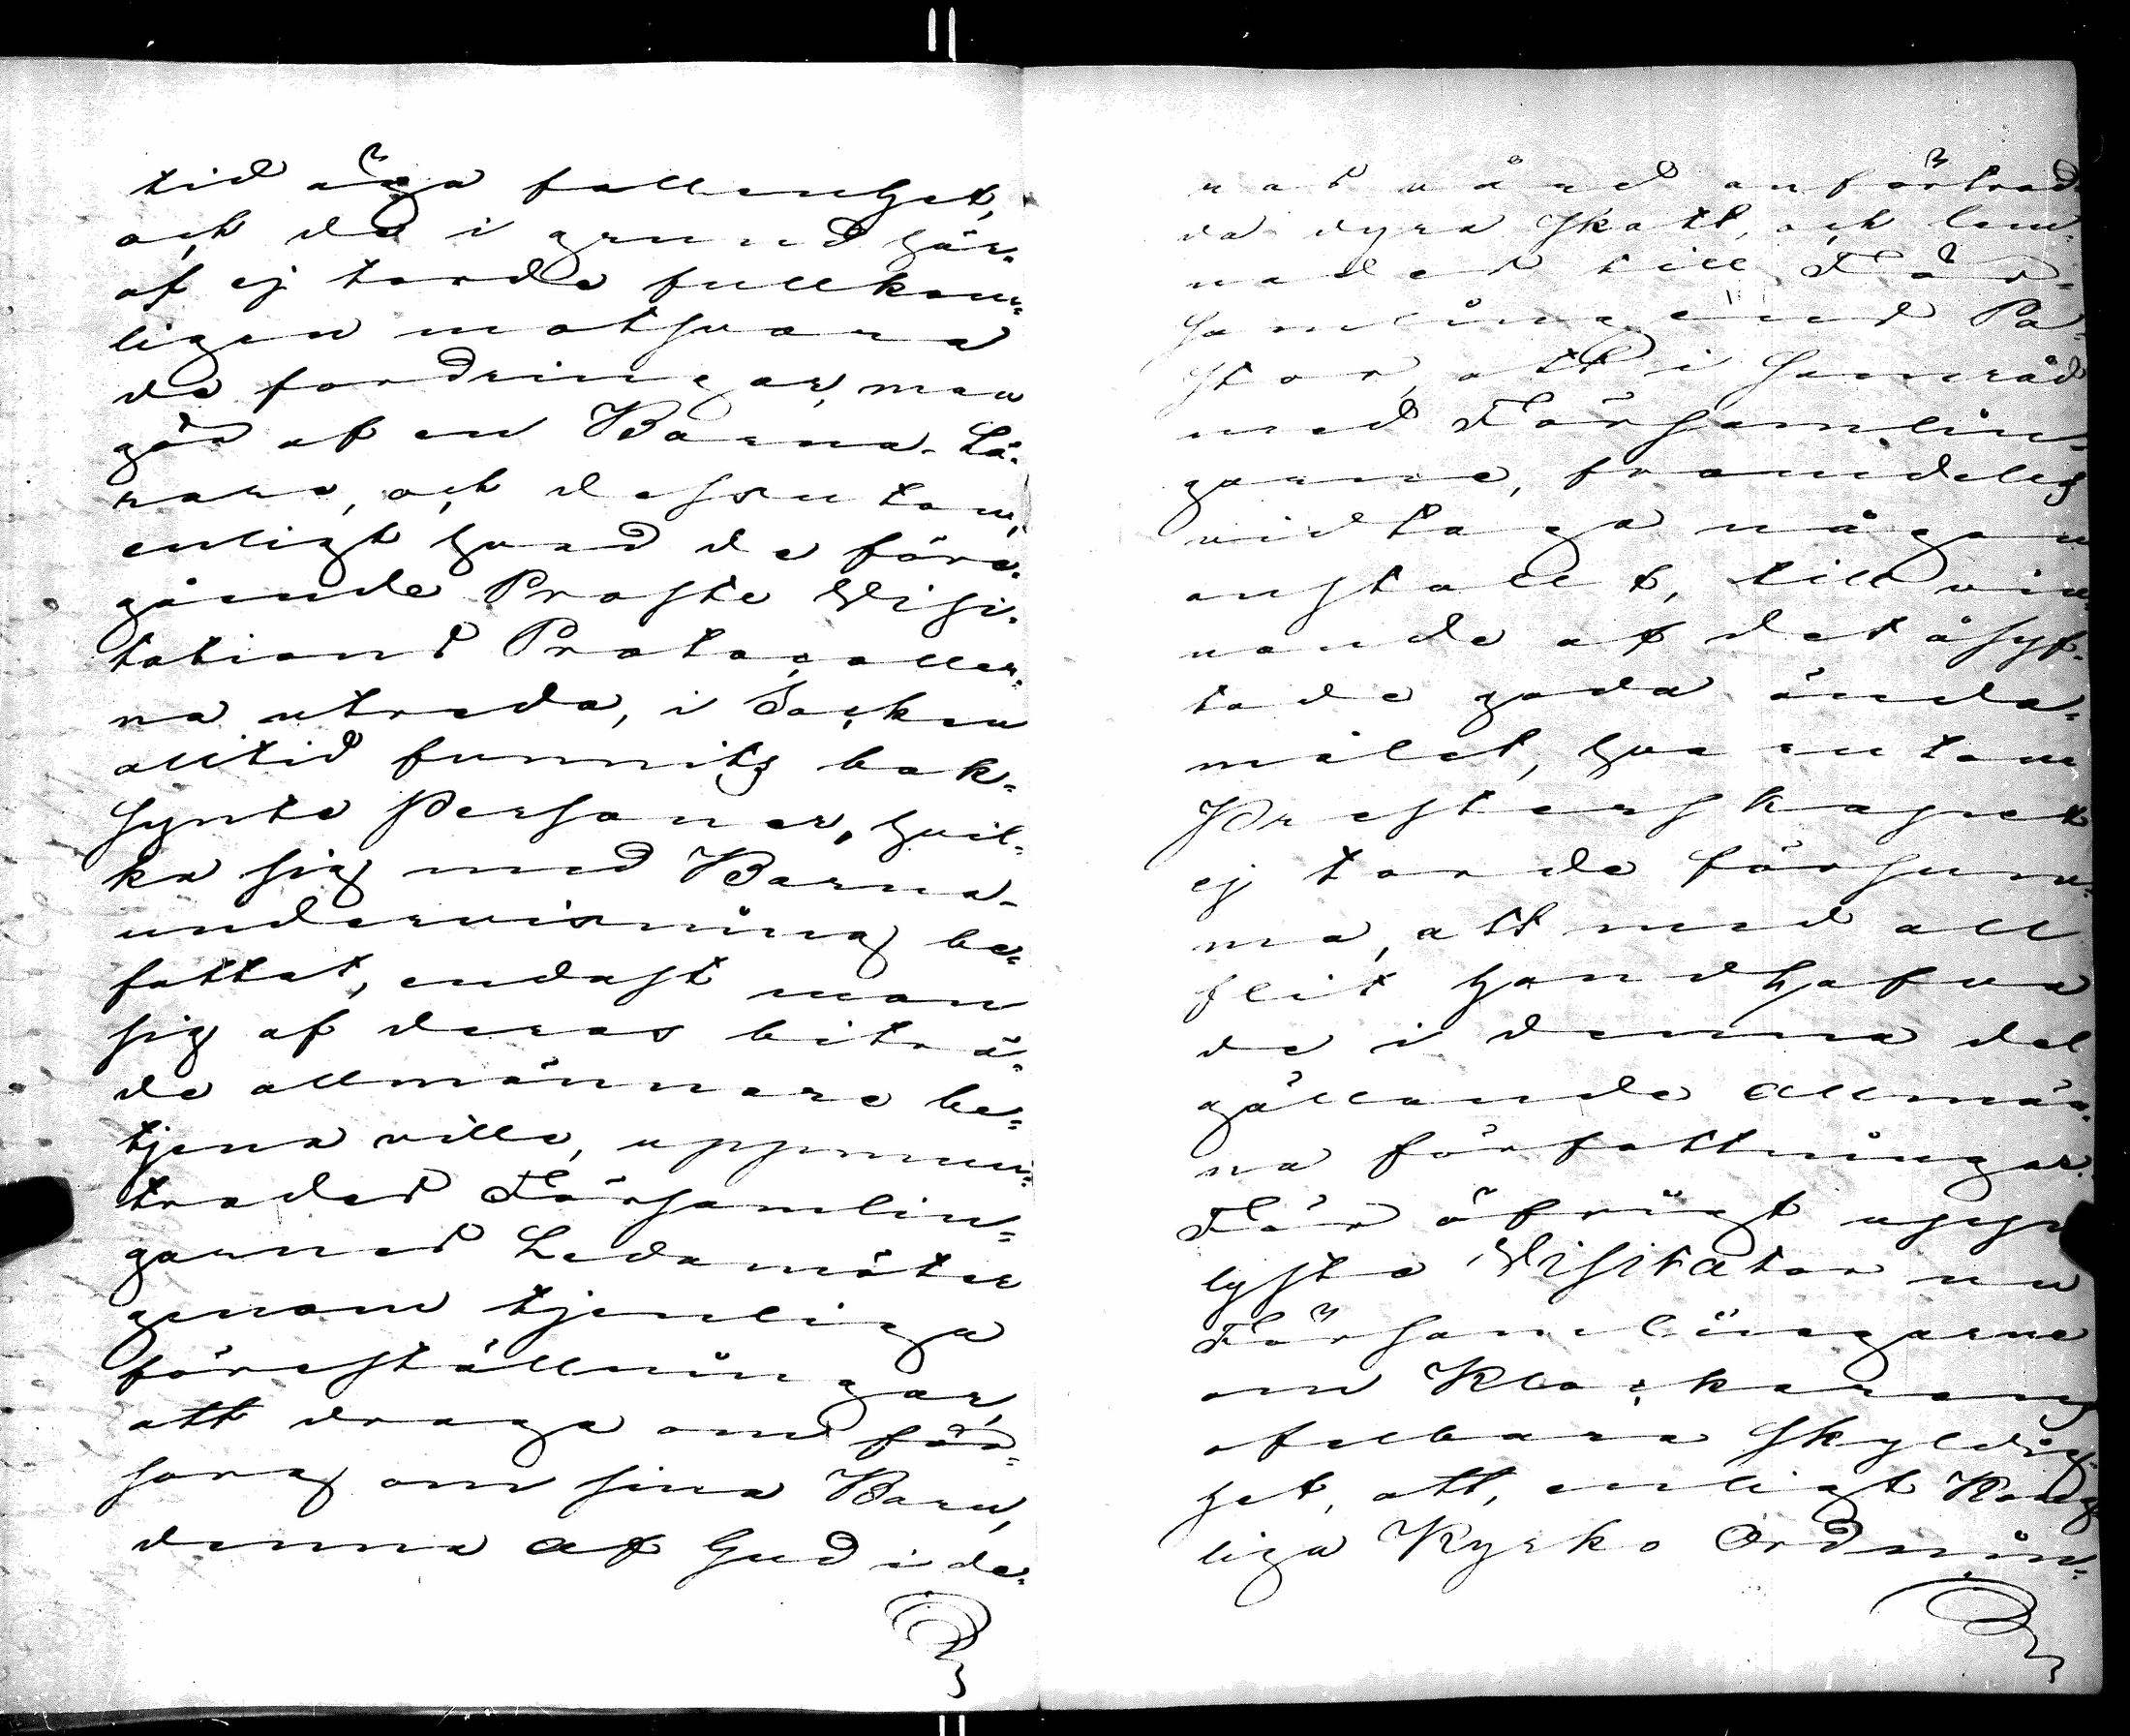 tid äga fallenhet,
och de i grund här=
af ej torde fullkom=
ligen motsvara
de fordringar, man
gör af en Barna-Lä=
rare, och dessutom,
enligt hvad de före=
gående Proste Visi=
tations Protocoller=
na utreda, i Socken
alltid funnits bok=
synte Personer, hvil=
ka sig med Barna-
undervisning be=
fattat, endast man
sig af deras biträ=
de allmännare be=
tjena ville, uppmun=
trades Församlin=
garnes Ledamöter
genom tjenliga
föreställningar,
att draga om för=
sorg om sina Barn,
denna af Gud i de=
ras vård anförtrod=
da dyra skatt, och lem=
nades till För=
samlingens Pa=
stor, att i samråd
med Församlin=
garne, framdeles
vidtaga någon
anstallt, till vin=
nande af det åsyf=
tade goda ända=
målet, hvarutom
Presterskapet
ej torde försum=
ma, att med all
flit handhafva
de i denna del
gällande allmän=
na författningar.
För öfrigt upp=
lyste Visitator nu
Församlingarne
om Klockarens
ofelbara skyldig=
het, att, enligt Kong=
liga Kyrko Ordnin=